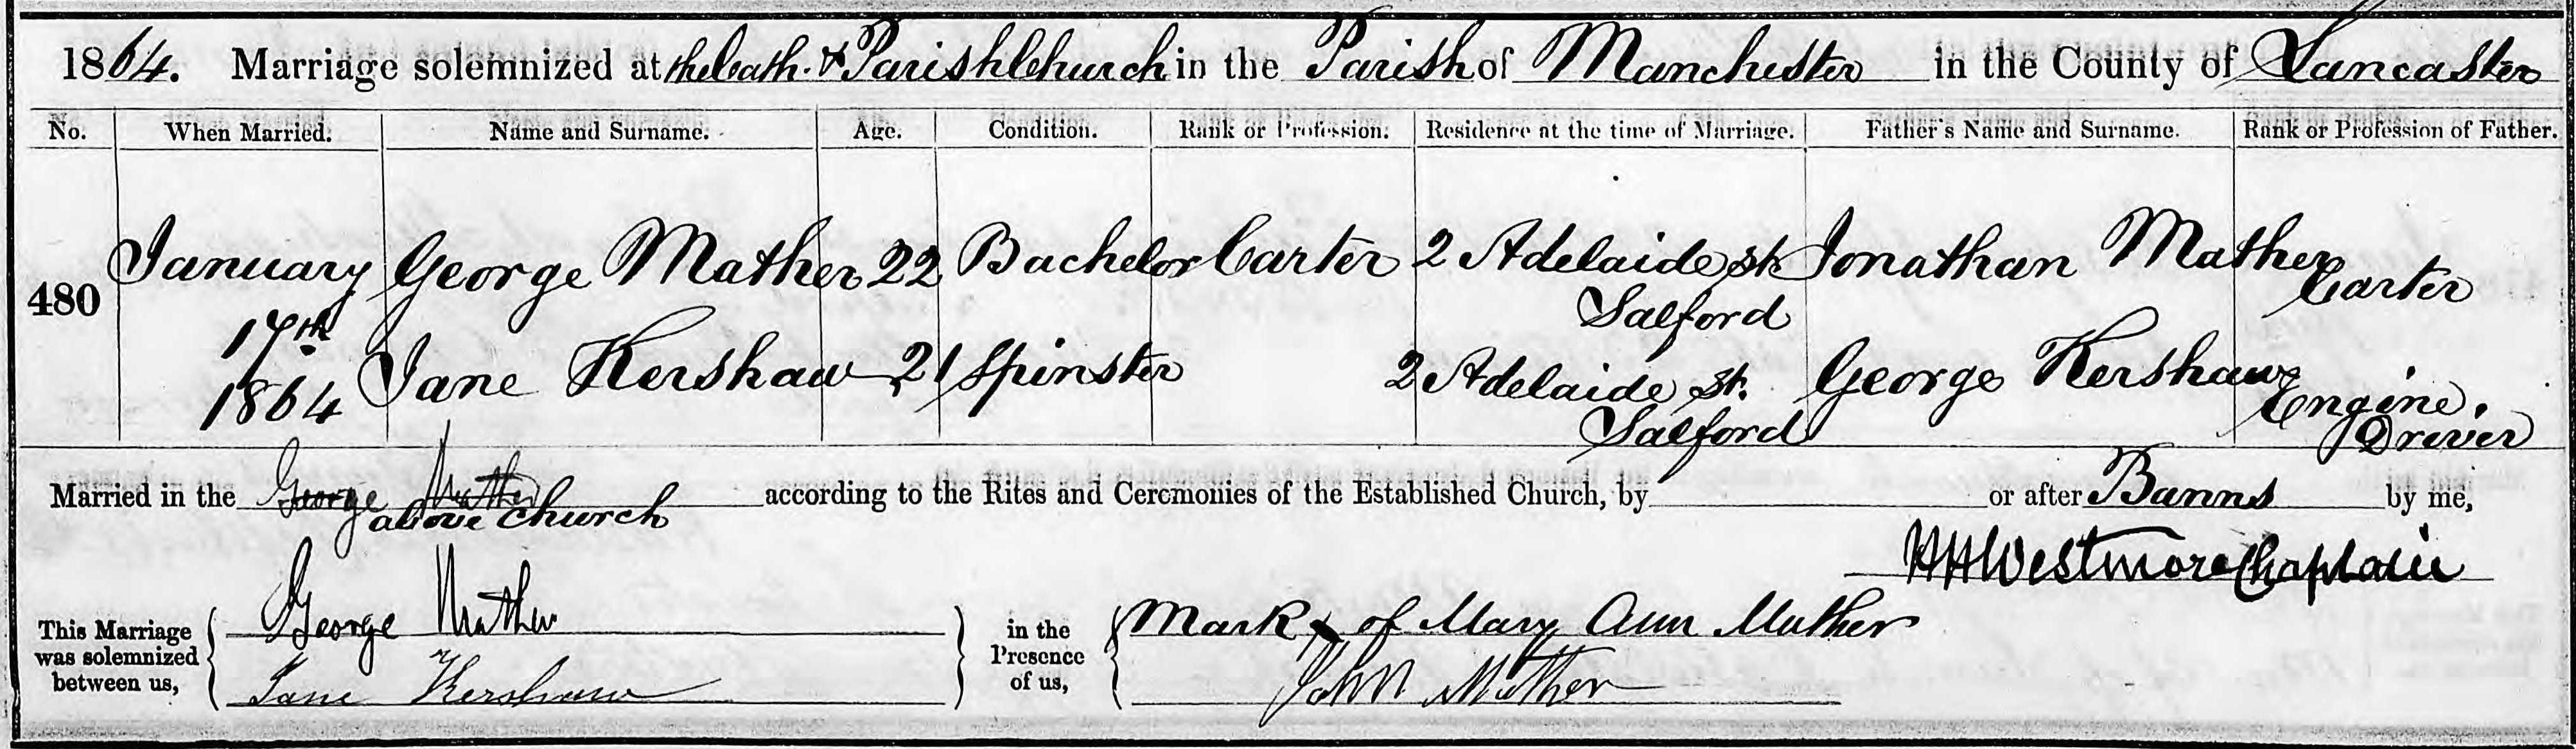 1864. Marriage solemnized at the Cath. & Parish Church in the Parish of Manchester in the County of Lancaster
No. When Married. Name and Surname. Age. Condition. Rank or Profession. Residence at the time of Marriage. Father's Name and Surname. Rank or Profession of Father.
480 January George Mather 22 Bachelor Carter 2 Adelaide St Jonathan Mather Carter
Salford
17th
1864 Jane Kershaw 21 Spinster 2 Adelaide St. George Kershaw Engine.
Salford Driver
Married in the George Mather according to the Rites and Ceremonies of the Established Church, by or after Banns by me,
above Church
HHWestmore Chaplain
This Marriage was solemnized between us, George Mather in the Presence of us, Mark x of Mary Ann Mather
Jane Kershaw John Mather